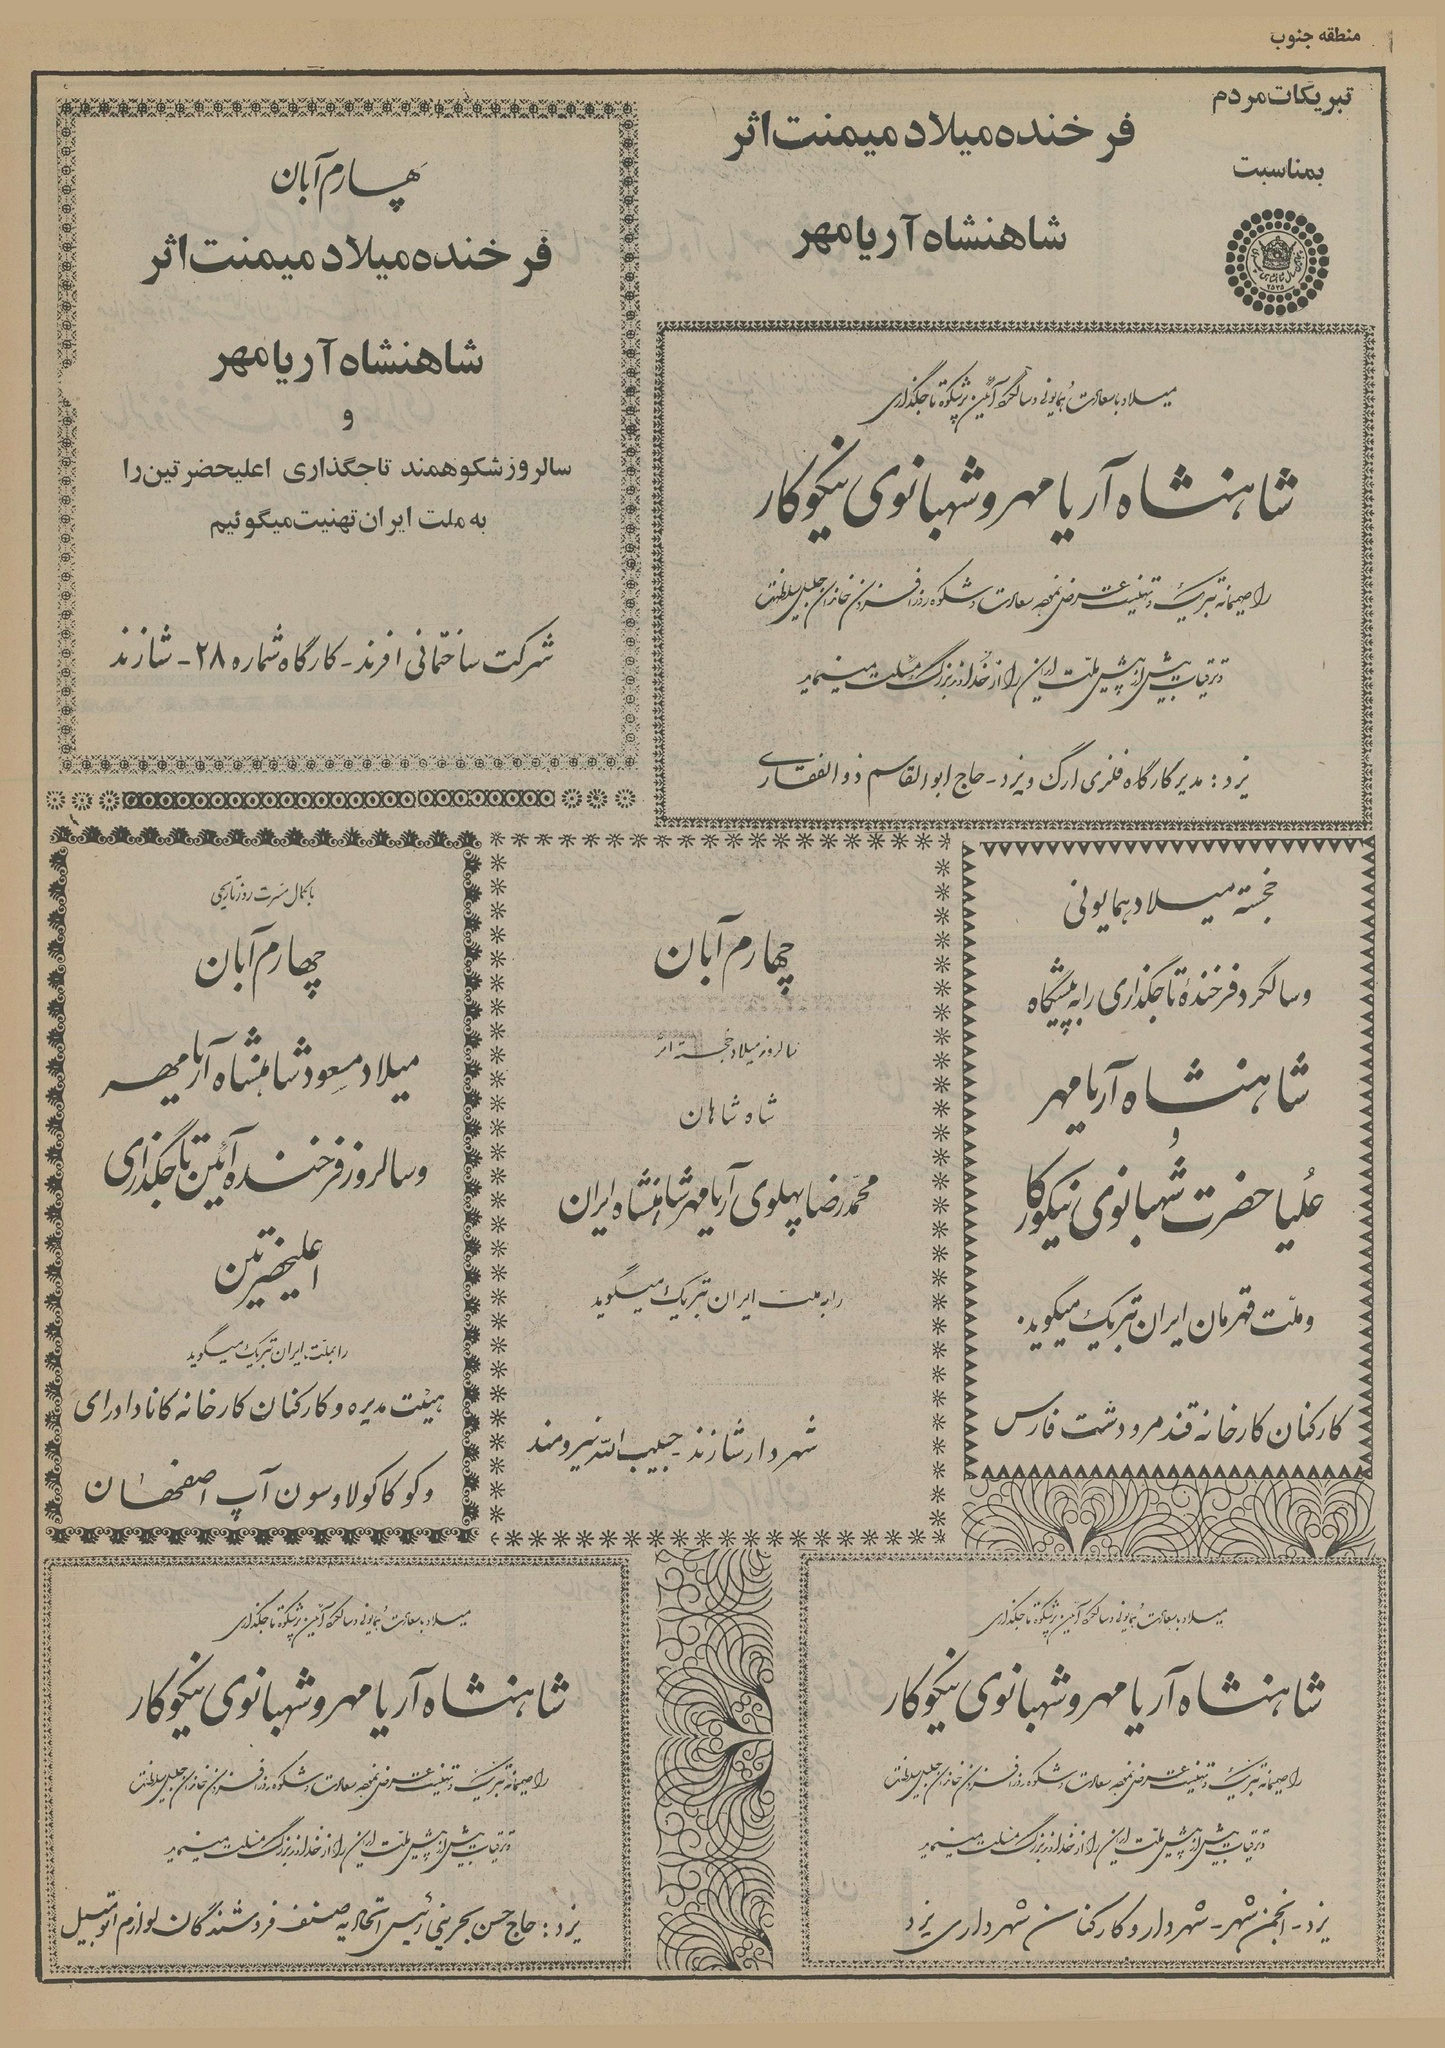 منطقه جنوب
تبریکات مردم
بمناسبت
فرخنده میلاد میمنت اثر
شاهنشاه آریامهر
۲۵۳۵
میلاد با سعادت همایونی و سالگرد آئین پرشکوه تاجگذاری
شاهنشاه آریامهر و شهبانوی نیکوکار
را صمیمانه تبریک و تهنیت عرض نموده سعادت و شکوه روزافزون خاندان جلیل سلطنت
و ترقیات بیش از پیش ملت ایران را از خداوند بزرگ مسئلت مینماید
یزد : مدیر کارگاه فلزی ارگ و یزد - حاج ابوالقاسم ذوالفقاری
چهارم آبان
فرخنده میلاد میمنت اثر
شاهنشاه آریامهر
و
سالروز شکوهمند تاجگذاری اعلیحضرتین را
به ملت ایران تهنیت میگوئیم
شرکت ساختمانی افرند - کارگاه شماره ۲۸ - شازند
خجسته میلاد همایونی
و سالگرد فرخندهٔ تاجگذاری را به پیشگاه
شاهنشاه آریامهر
و
علیا حضرت شهبانوی نیکوکار
و ملت قهرمان ایران تبریک میگوید.
کارکنان کارخانه قند مرودشت فارس
چهارم آبان
سالروز میلاد خجسته اثر
شاه شاهان
محمدرضا پهلوی آریامهر شاهنشاه ایران
را به ملت ایران تبریک میگوید
شهردار شازند - حبیب الله نیرومند
با کمال مسرت روز تاریخی
چهارم آبان
میلاد مسعود شاهنشاه آریامهر
و سالروز فرخنده آئین تاجگذاری
اعلیحضرتین
را بملت ایران تبریک میگوید
هیئت مدیره و کارکنان کارخانه کانادادرای
و کوکاکولا و سون آپ اصفهان
میلاد با سعادت همایونی و سالگرد آئین پرشکوه تاجگذاری
شاهنشاه آریامهر و شهبانوی نیکوکار
را صمیمانه تبریک و تهنیت عرض نموده سعادت و شکوه روزافزون خاندان جلیل سلطنت
و ترقیات بیش از پیش ملت ایران را از خداوند بزرگ مسئلت مینماید
یزد - انجمن شهر - شهردار و کارکنان شهرداری یزد
میلاد با سعادت همایونی و سالگرد آئین پرشکوه تاجگذاری
شاهنشاه آریامهر و شهبانوی نیکوکار
را صمیمانه تبریک و تهنیت عرض نموده سعادت و شکوه روزافزون خاندان جلیل سلطنت
و ترقیات بیش از پیش ملت ایران را از خداوند بزرگ مسئلت مینماید
یزد : حاج حسن بحرینی رئیس اتحادیه صنف فروشندگان لوازم اتومبیل